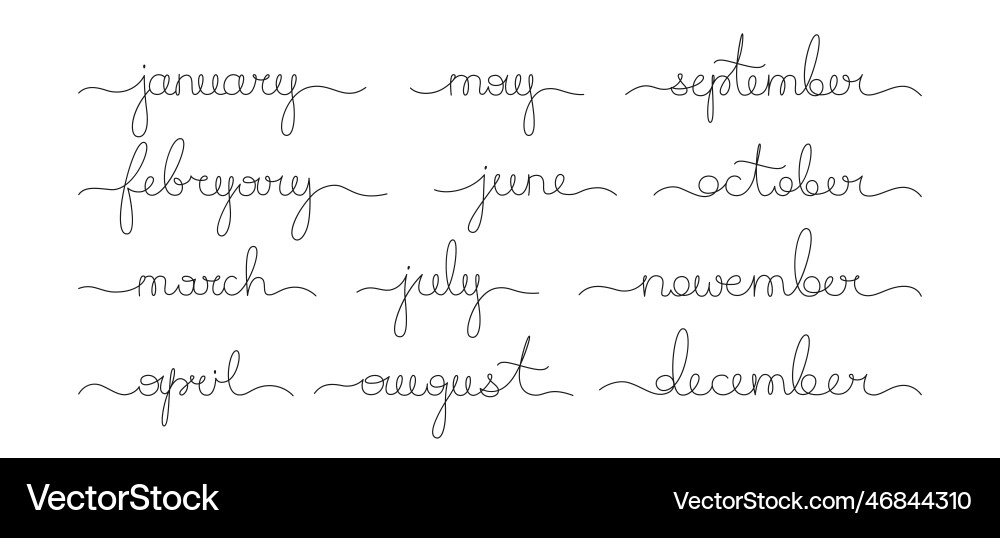 january may september
febryary june october
march july november
april august december
VectorStock VectorStock.com/46844310